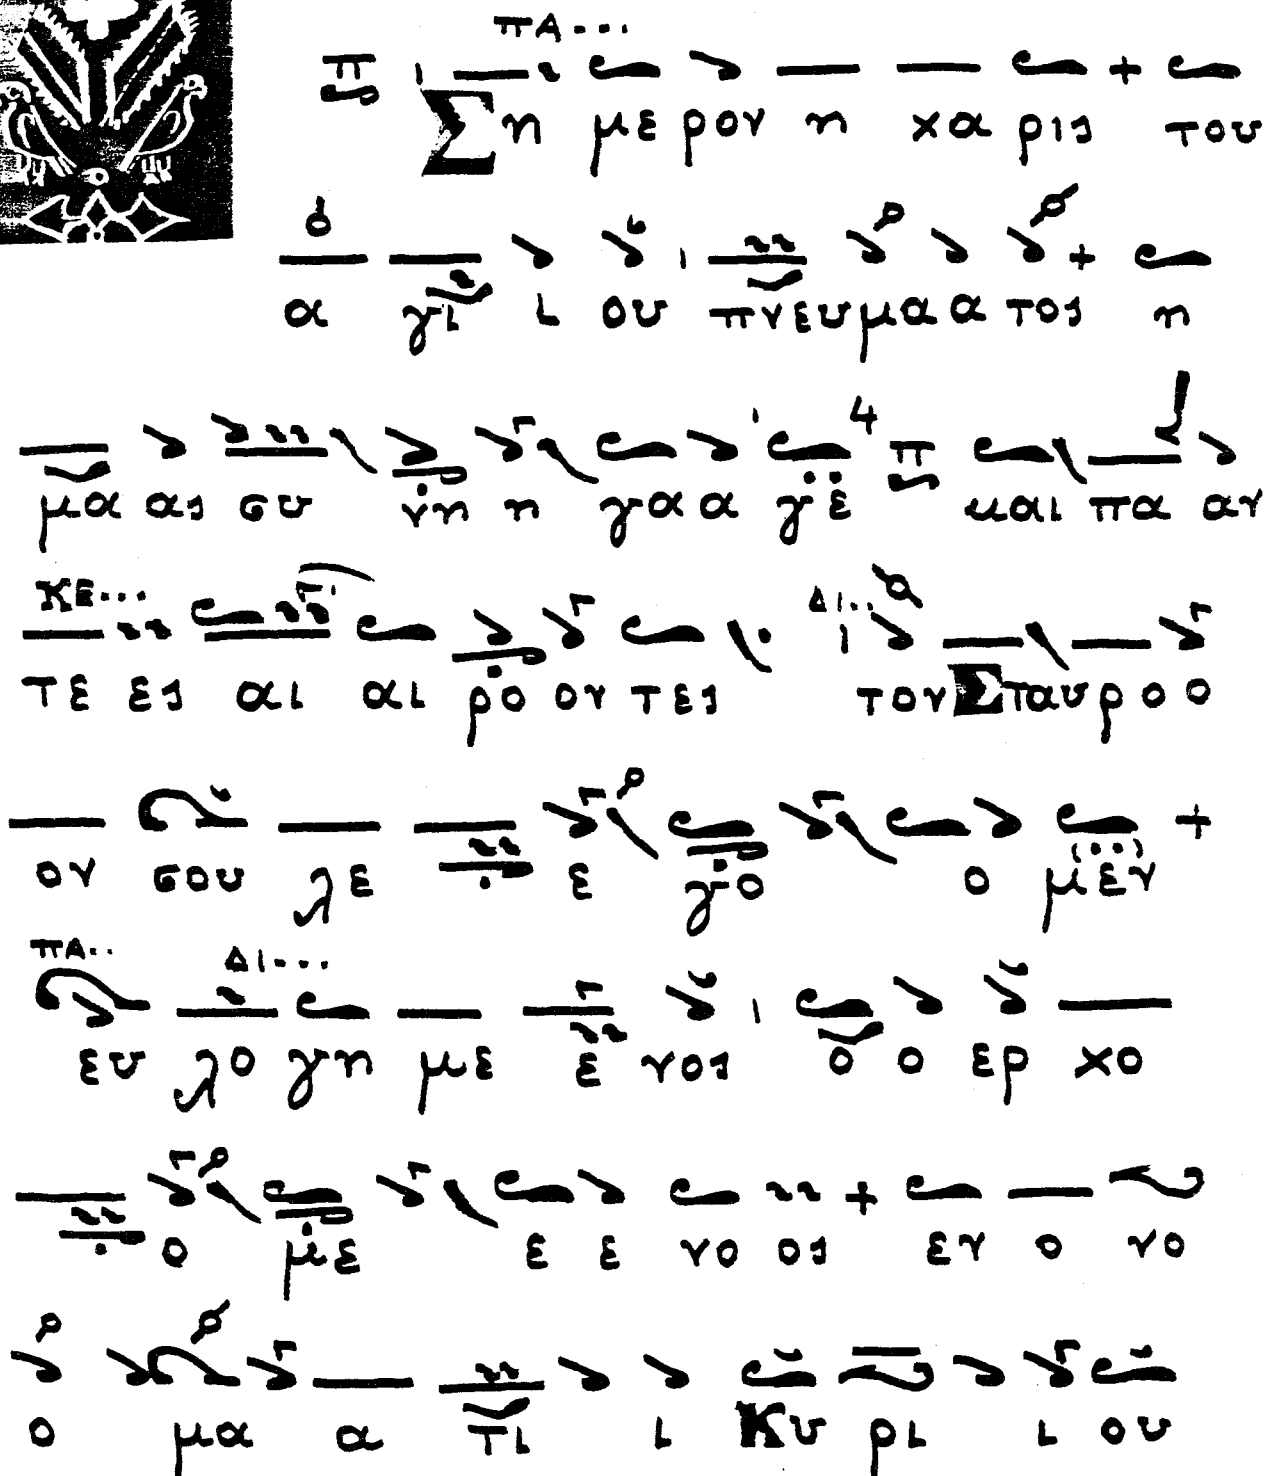 πΑ...
π Ση με ρον η χα ρις του
α γι ι ου πνευμα α τος η
μα ας συ νη η γα α γε 4 π και πα αν
ΚΕ... Δι..
τε ες αι αι ρο ον τες τον Σταυρο ο
ον σου λε ε γο ο μεν
πΑ.. Δι...
ευ λο γη με ε νος ο ο ερ χο
ο με ε ε νο ος εν ο νο
ο μα α τι ι Κυ ρι ι ου